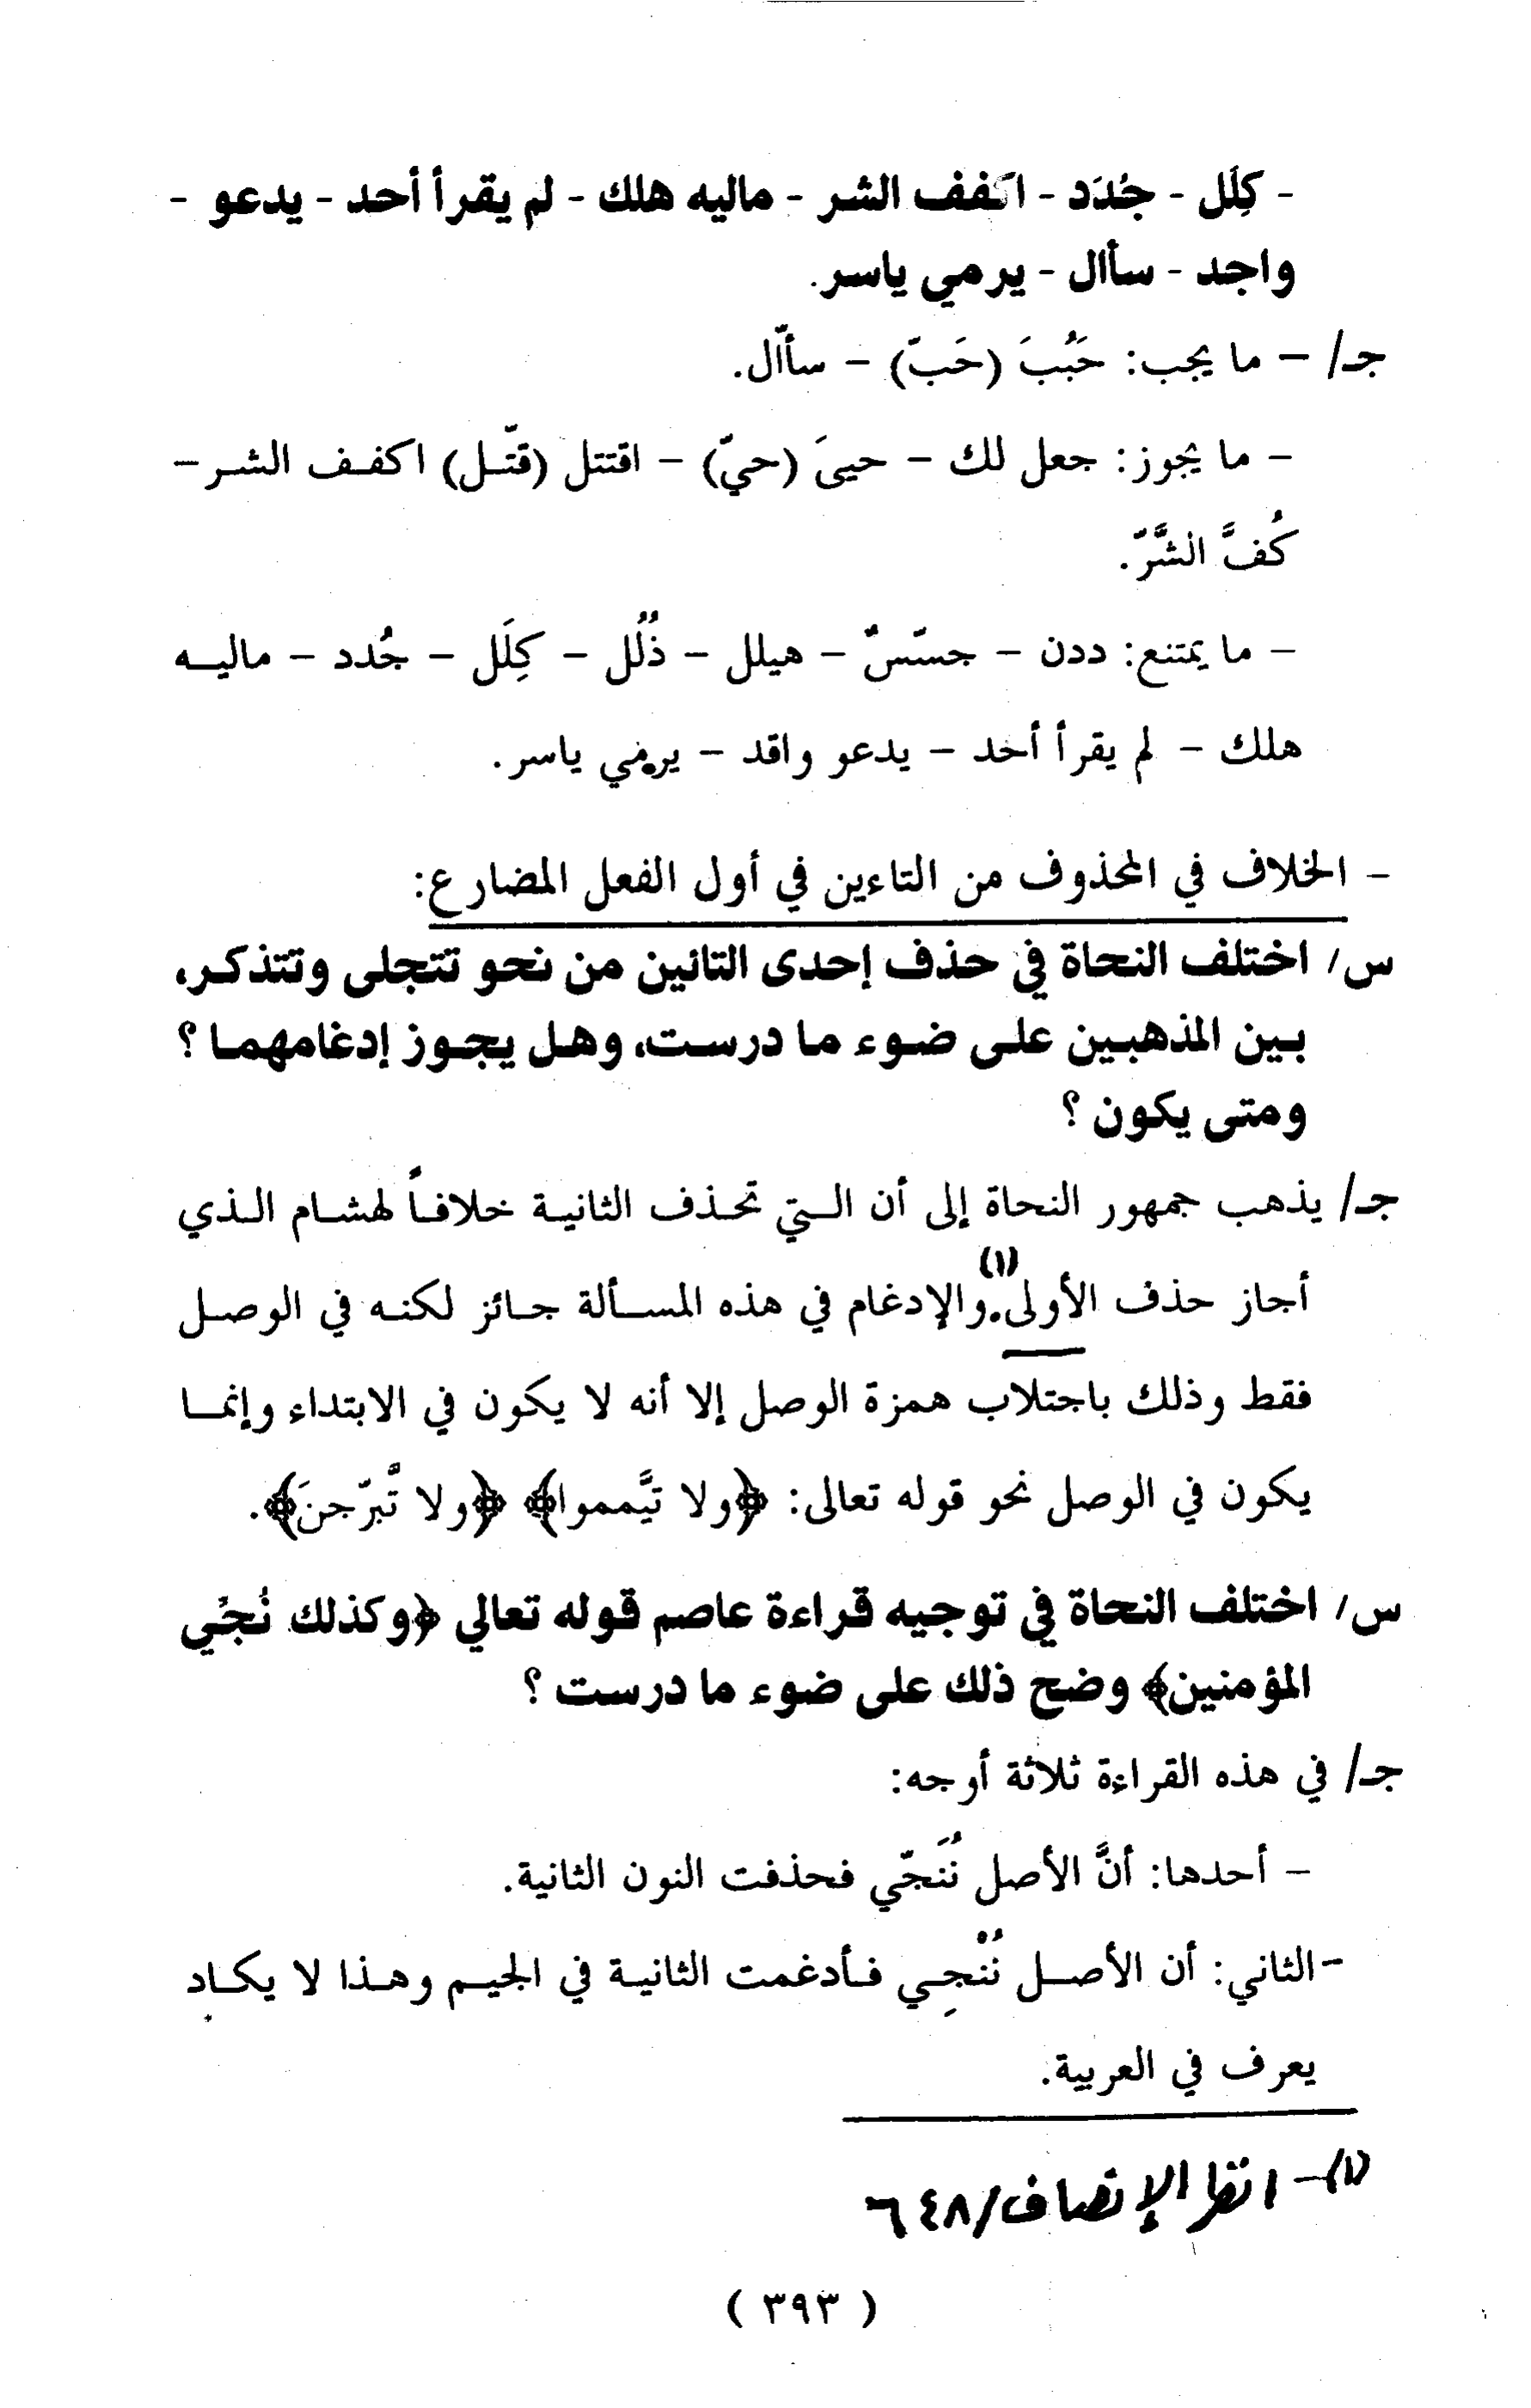 - كِلَل - جُدَد - اكفف الشر - ماليه هلك - لم يقرأ أحد - يدعو -
واجد - سأال - يرمي ياسر.
جـ/ – ما يجب: حَبُبَ (حَبّ) – سأّال.
– ما يجوز: جعل لك – حييَ (حيّ) – اقتتل (قتّـل) اكفـف الشـر –
كُفَّ الشَّرّ.
– ما يمتنع: ددن – جسّسٌ – هيلل – ذُلُل – كِلَل – جُدد – ماليـه
هلك – لم يقرأ أحد – يدعو واقد – يرمي ياسر.
- الخلاف في المحذوف من التاءين في أول الفعل المضارع:
س/ اختلف النحاة في حذف إحدى التائين من نحو تتجلى وتتذكر،
بين المذهبين على ضوء ما درست، وهل يجوز إدغامهما ؟
ومتى يكون ؟
جـ/ يذهب جمهور النحاة إلى أن الـتي تحـذف الثانيـة خلافـاً لهشـام الـذي
أجاز حذف الأولى(١).والإدغام في هذه المسـألة جـائز لكنـه في الوصـل
فقط وذلك باجتلاب همزة الوصل إلا أنه لا يكون في الابتداء وإنمـا
يكون في الوصل نحو قوله تعالى: ﴿ولا تيَّمموا﴾ ﴿ولا تَّبرّجنَ﴾.
س/ اختلف النحاة في توجيه قراءة عاصم قوله تعالي ﴿وكذلك نُجِّي
المؤمنين﴾ وضح ذلك على ضوء ما درست ؟
جـ/ في هذه القراءة ثلاثة أوجه:
– أحدها: أنَّ الأصل نُنَجّي فحذفت النون الثانية.
- الثاني: أن الأصـل نُنْجِـي فـأدغمت الثانيـة في الجيـم وهـذا لا يكـاد
يعرف في العربية.
(١)- انظر الإنصاف/٦٤٨
( ٣٩٣ )